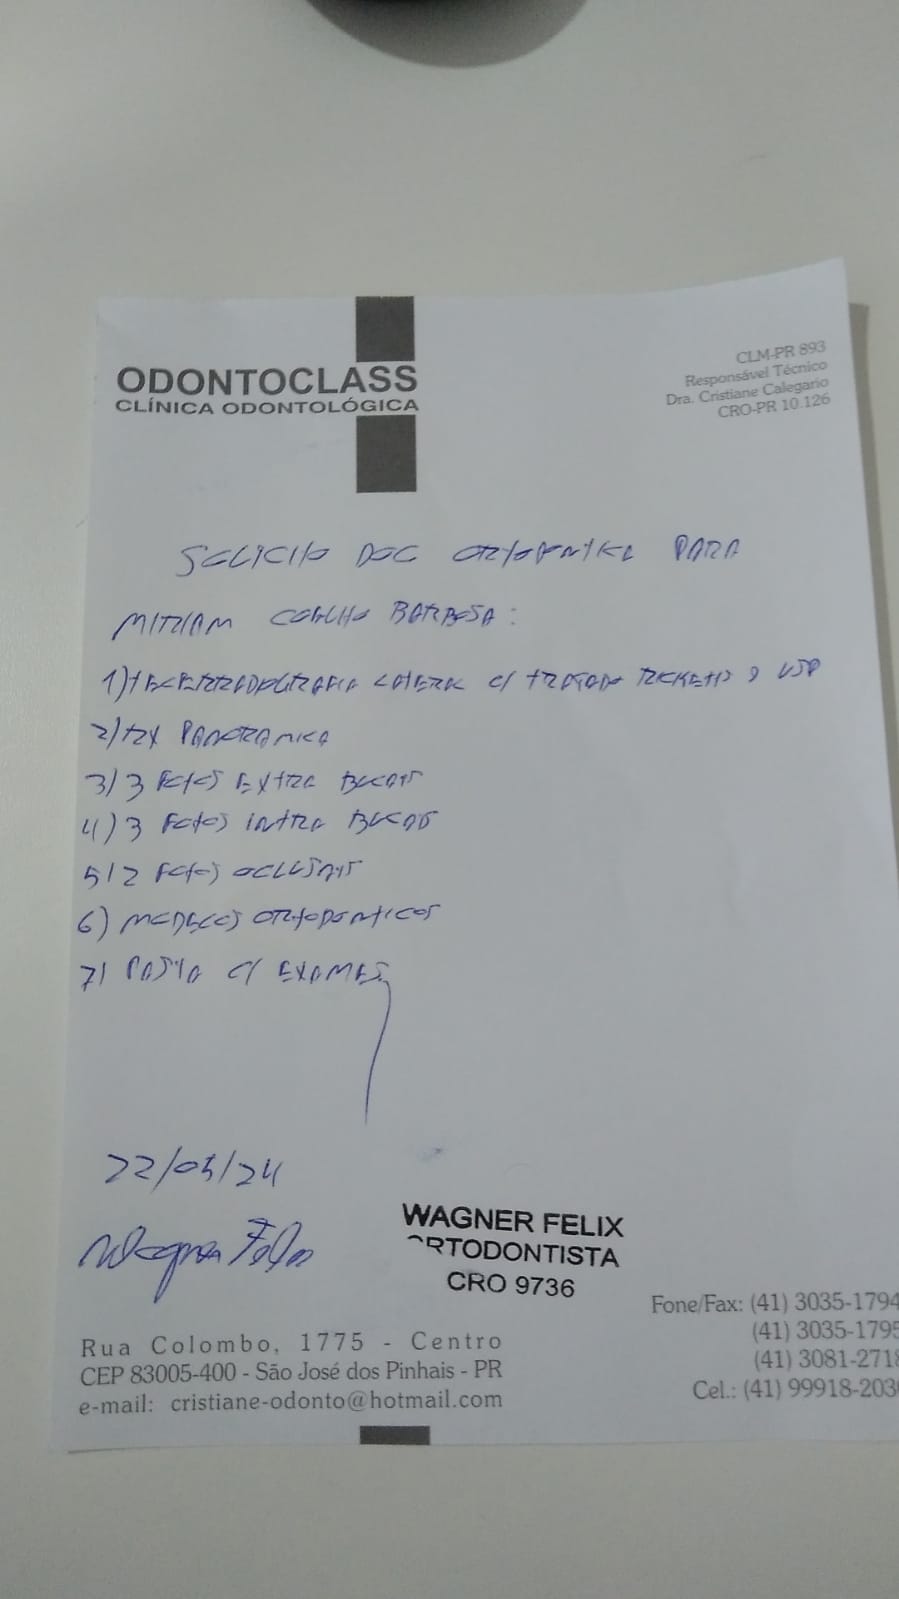 ODONTOCLASS
CLÍNICA ODONTOLÓGICA
CLM-PR 893
Responsável Técnico
Dra. Cristiane Calegario
CRO-PR 10.126
SOLICITO DOC ORTODONTICA PARA
MIRIAM COELHO BARBOSA:
1) TELERRADIOGRAFIA LATERAL C/ TRAÇADO RICKETTS E USP
2) RX PANORAMICA
3) 3 FOTOS EXTRA BUCAIS
4) 3 FOTOS INTRA BUCAIS
5) 2 FOTOS OCLUSAIS
6) MODELOS ORTODONTICOS
7) PASTA C/ EXAMES
22/05/24
Wagner Felix
WAGNER FELIX
ORTODONTISTA
CRO 9736
Rua Colombo, 1775 - Centro
CEP 83005-400 - São José dos Pinhais - PR
e-mail: cristiane-odonto@hotmail.com
Fone/Fax: (41) 3035-1794
(41) 3035-1795
(41) 3081-2718
Cel.: (41) 99918-2030